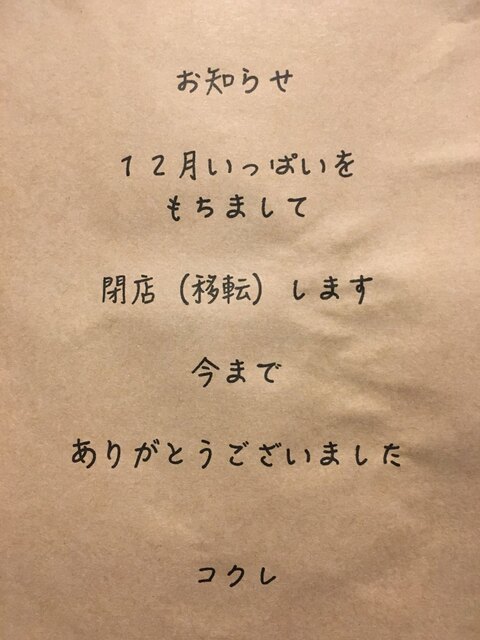 お知らせ
12月いっぱいを
もちまして
閉店(移転)します
今まで
ありがとうございました
コクレ